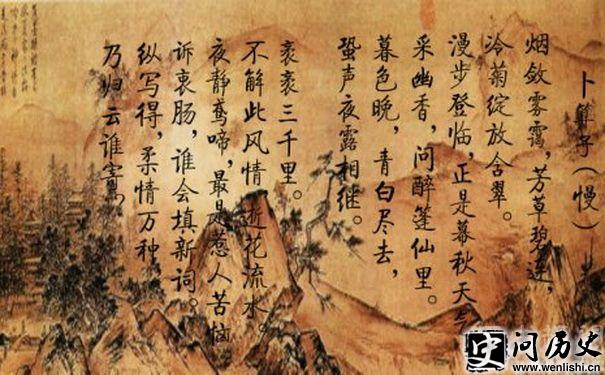 卜算子(慢)
烟敛雾霭,芳草碧连,
冷菊绽放含翠。
漫步登临,正是幕秋天气。
采幽香,问醉篷仙里。
暮色晚,青白尽去,
蛩声夜露相继。
衮衮三千里。
不解此风情 逝花流水。
夜静鸢啼,最是惹人苦恼
诉衷肠,谁会填新词。
纵写得,柔情万种
乃归云谁寄?
史 问历史
www.wenlishi.cn